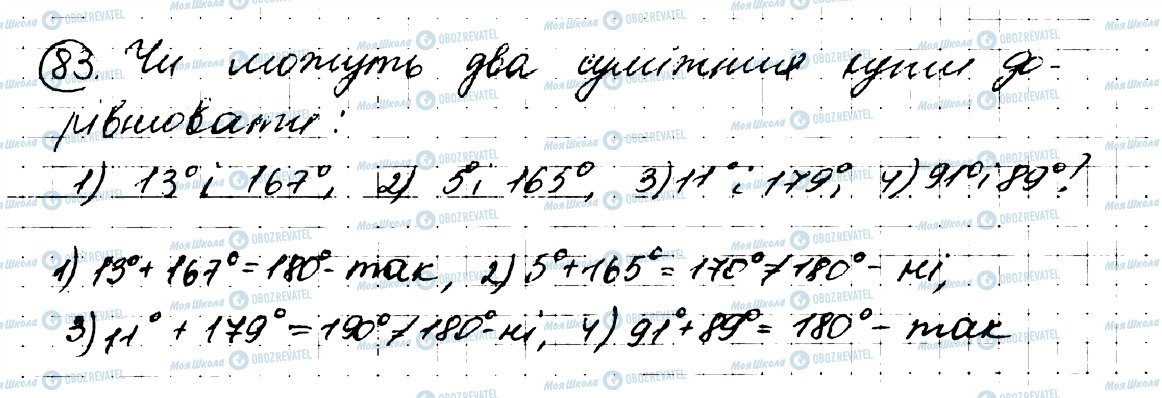 83. Чи можуть два суміжних кути до-
рівнювати:
1) 13° і 167°, 2) 5° і 165°, 3) 11° і 179°, 4) 91° і 89°?
1) 13° + 167° = 180° - так, 2) 5° + 165° = 170° ≠ 180° - ні,
3) 11° + 179° = 190° ≠ 180° - ні, 4) 91° + 89° = 180° - так